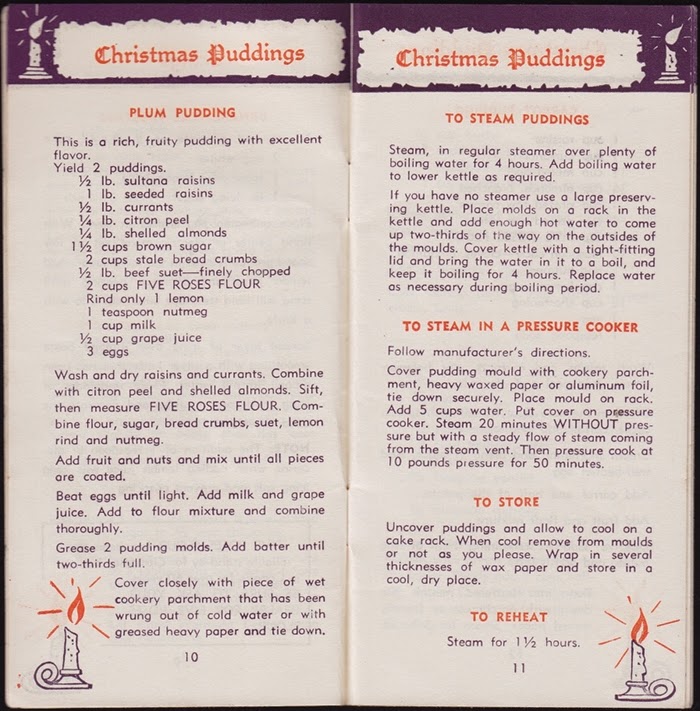 Christmas Puddings
PLUM PUDDING
This is a rich, fruity pudding with excellent
flavor.
Yield 2 puddings.
½ lb. sultana raisins
1 lb. seeded raisins
½ lb. currants
¼ lb. citron peel
¼ lb. shelled almonds
1½ cups brown sugar
2 cups stale bread crumbs
½ lb. beef suet—finely chopped
2 cups FIVE ROSES FLOUR
Rind only 1 lemon
1 teaspoon nutmeg
1 cup milk
½ cup grape juice
3 eggs
Wash and dry raisins and currants. Combine
with citron peel and shelled almonds. Sift,
then measure FIVE ROSES FLOUR. Com-
bine flour, sugar, bread crumbs, suet, lemon
rind and nutmeg.
Add fruit and nuts and mix until all pieces
are coated.
Beat eggs until light. Add milk and grape
juice. Add to flour mixture and combine
thoroughly.
Grease 2 pudding molds. Add batter until
two-thirds full.
Cover closely with piece of wet
cookery parchment that has been
wrung out of cold water or with
greased heavy paper and tie down.
10
Christmas Puddings
TO STEAM PUDDINGS
Steam, in regular steamer over plenty of
boiling water for 4 hours. Add boiling water
to lower kettle as required.
If you have no steamer use a large preserv-
ing kettle. Place molds on a rack in the
kettle and add enough hot water to come
up two-thirds of the way on the outsides of
the moulds. Cover kettle with a tight-fitting
lid and bring the water in it to a boil, and
keep it boiling for 4 hours. Replace water
as necessary during boiling period.
TO STEAM IN A PRESSURE COOKER
Follow manufacturer's directions.
Cover pudding mould with cookery parch-
ment, heavy waxed paper or aluminum foil,
tie down securely. Place mould on rack.
Add 5 cups water. Put cover on pressure
cooker. Steam 20 minutes WITHOUT pres-
sure but with a steady flow of steam coming
from the steam vent. Then pressure cook at
10 pounds pressure for 50 minutes.
TO STORE
Uncover puddings and allow to cool on a
cake rack. When cool remove from moulds
or not as you please. Wrap in several
thicknesses of wax paper and store in a
cool, dry place.
TO REHEAT
Steam for 1½ hours.
11